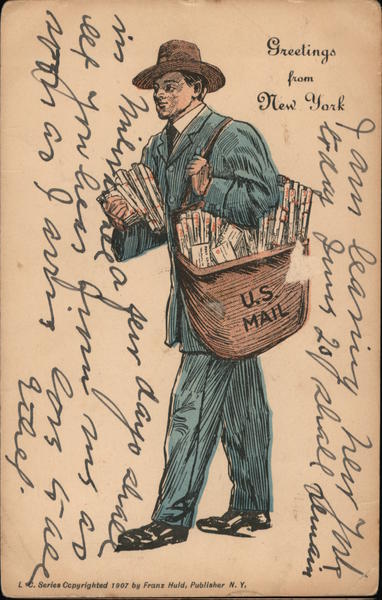 Greetings
from
New York
U.S.
MAIL
I am leaving New York
today June 20 shall remain
in a few days shall
let you hear from me as
soon as I arrive
Love to all
L. C. Series Copyrighted 1907 by Franz Huld, Publisher N. Y.